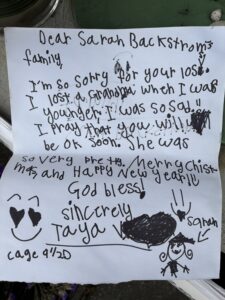 Dear Sarah Backstroms
family
I'm so sorry for your loss.
I lost a Grandpa when I was
younger I was so sad.
I pray that you will
be ok soon. She was
so very pretty. Merry Christ-
mas, and Happy New Year!!
God bless!
sincerely
Taya
Sarah